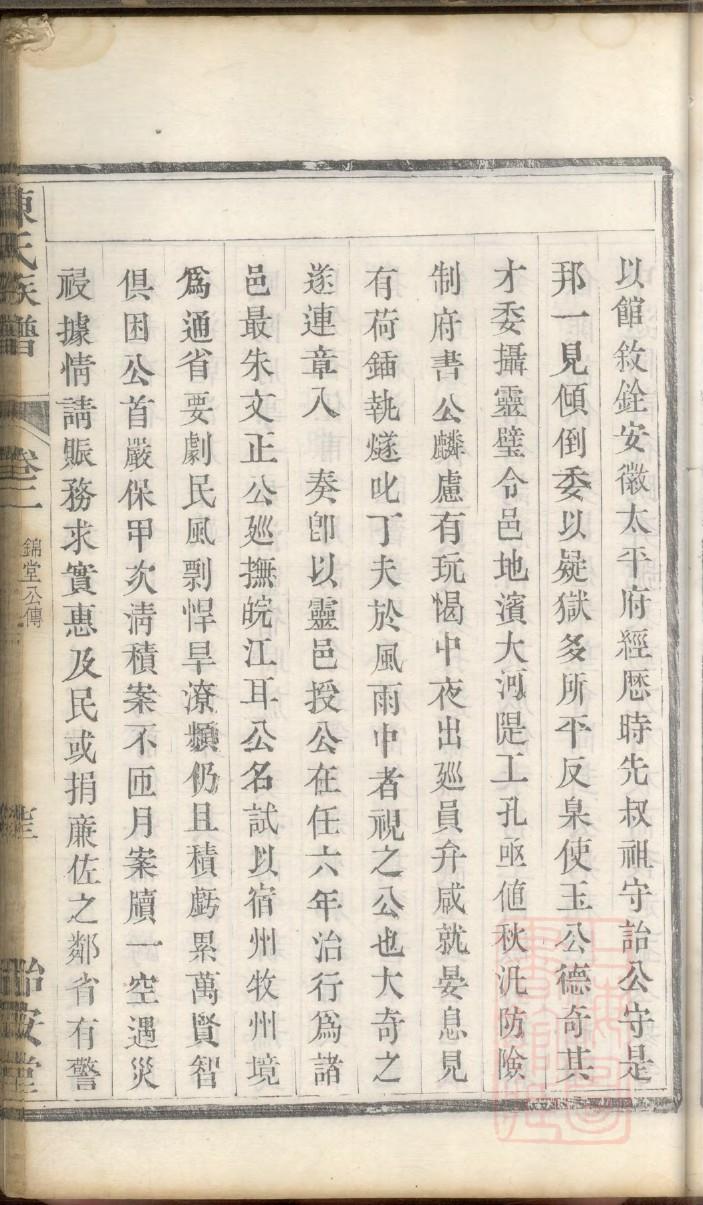 以館敘銓安徽太平府經厯時先叔祖守詒公守是
邦一見傾倒委以疑獄多所平反臬使玉公德奇其
才委攝靈璧令邑地濱大河隄工孔亟值秋汛防險
制府書公麟慮有玩愒中夜出廵員弁咸就晏息見
有荷鍤執燧叱丁夫於風雨中者視之公也大奇之
遂連章入　奏卽以靈邑授公在任六年治行爲諸
邑最朱文正公廵撫皖江耳公名試以宿州牧州境
爲通省要劇民風剽悍旱潦頻仍且積虧累萬賢智
俱困公首嚴保甲次清積案不匝月案牘一空遇災
祲據情請賑務求實惠及民或捐廉佐之鄰省有警
陳氏族譜
卷二
錦堂公傳
詒安堂